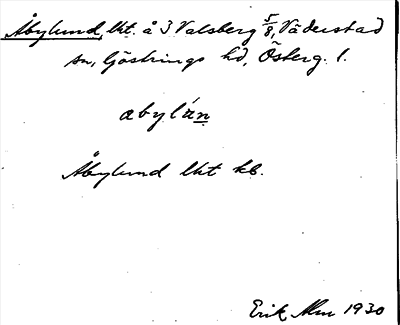 Åbylund, lht. å 3 Valsberg 5/8, Väderstad
sn, Göstrings hd, Österg. l.
abylán
Åbylund lht kb.
Erik Alm 1930